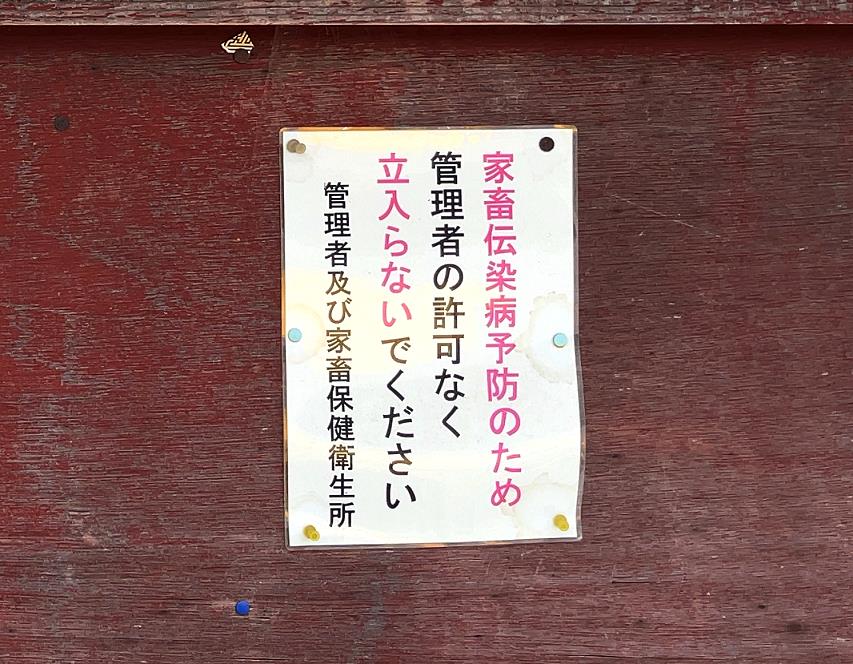 家畜伝染病予防のため
管理者の許可なく
立入らないでください
管理者及び家畜保健衛生所